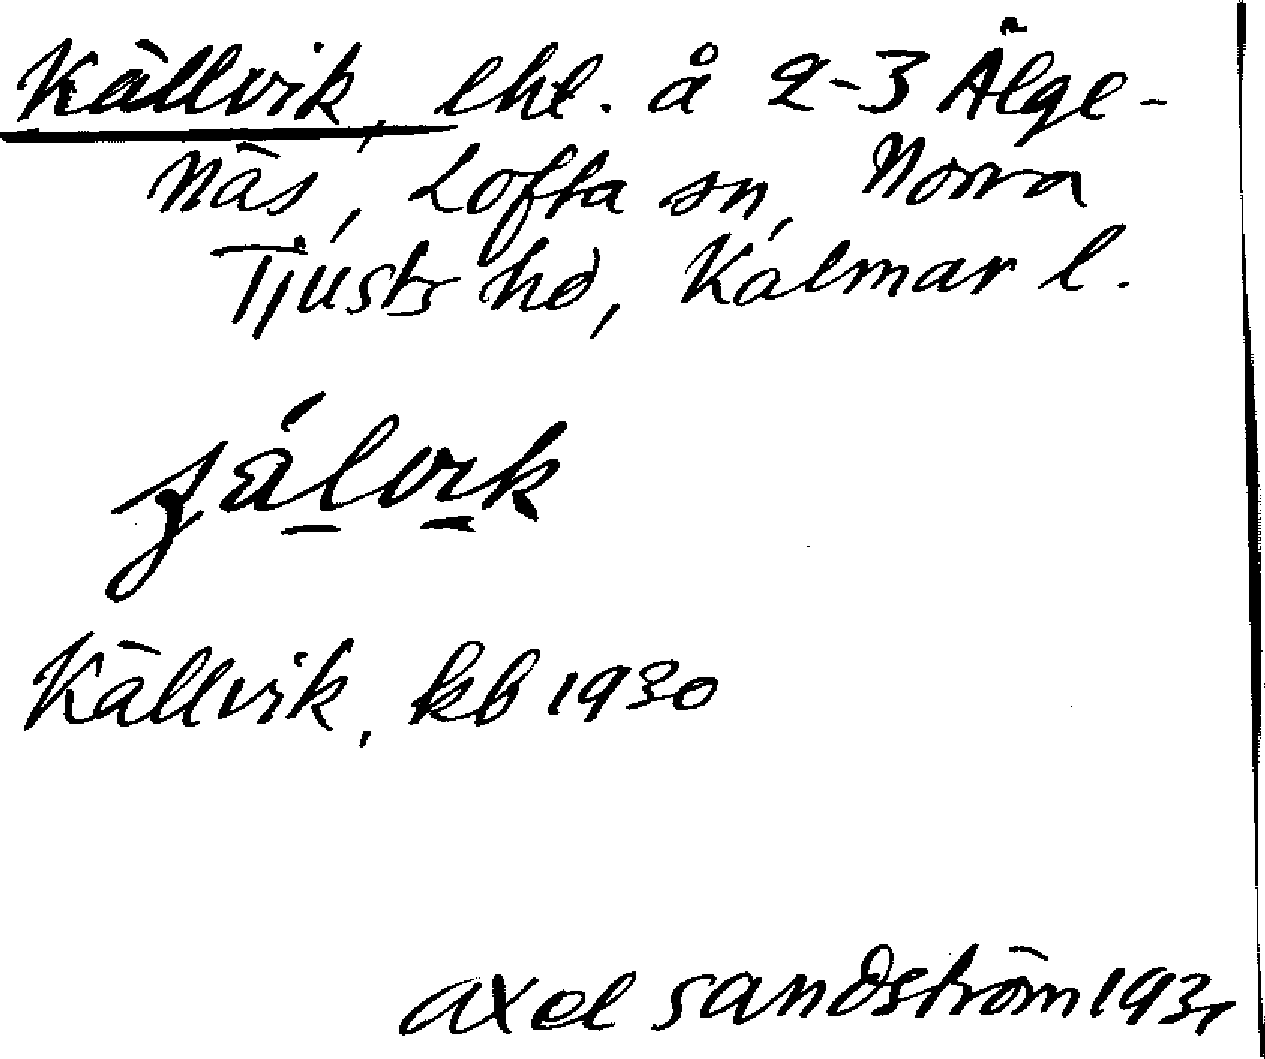 Källvik, lht. å 2-3 Älge-
näs, Lofta sn, Norra
Tjusts hd, Kalmar l.
Källvik, kb 1930
Axel Sandström 193